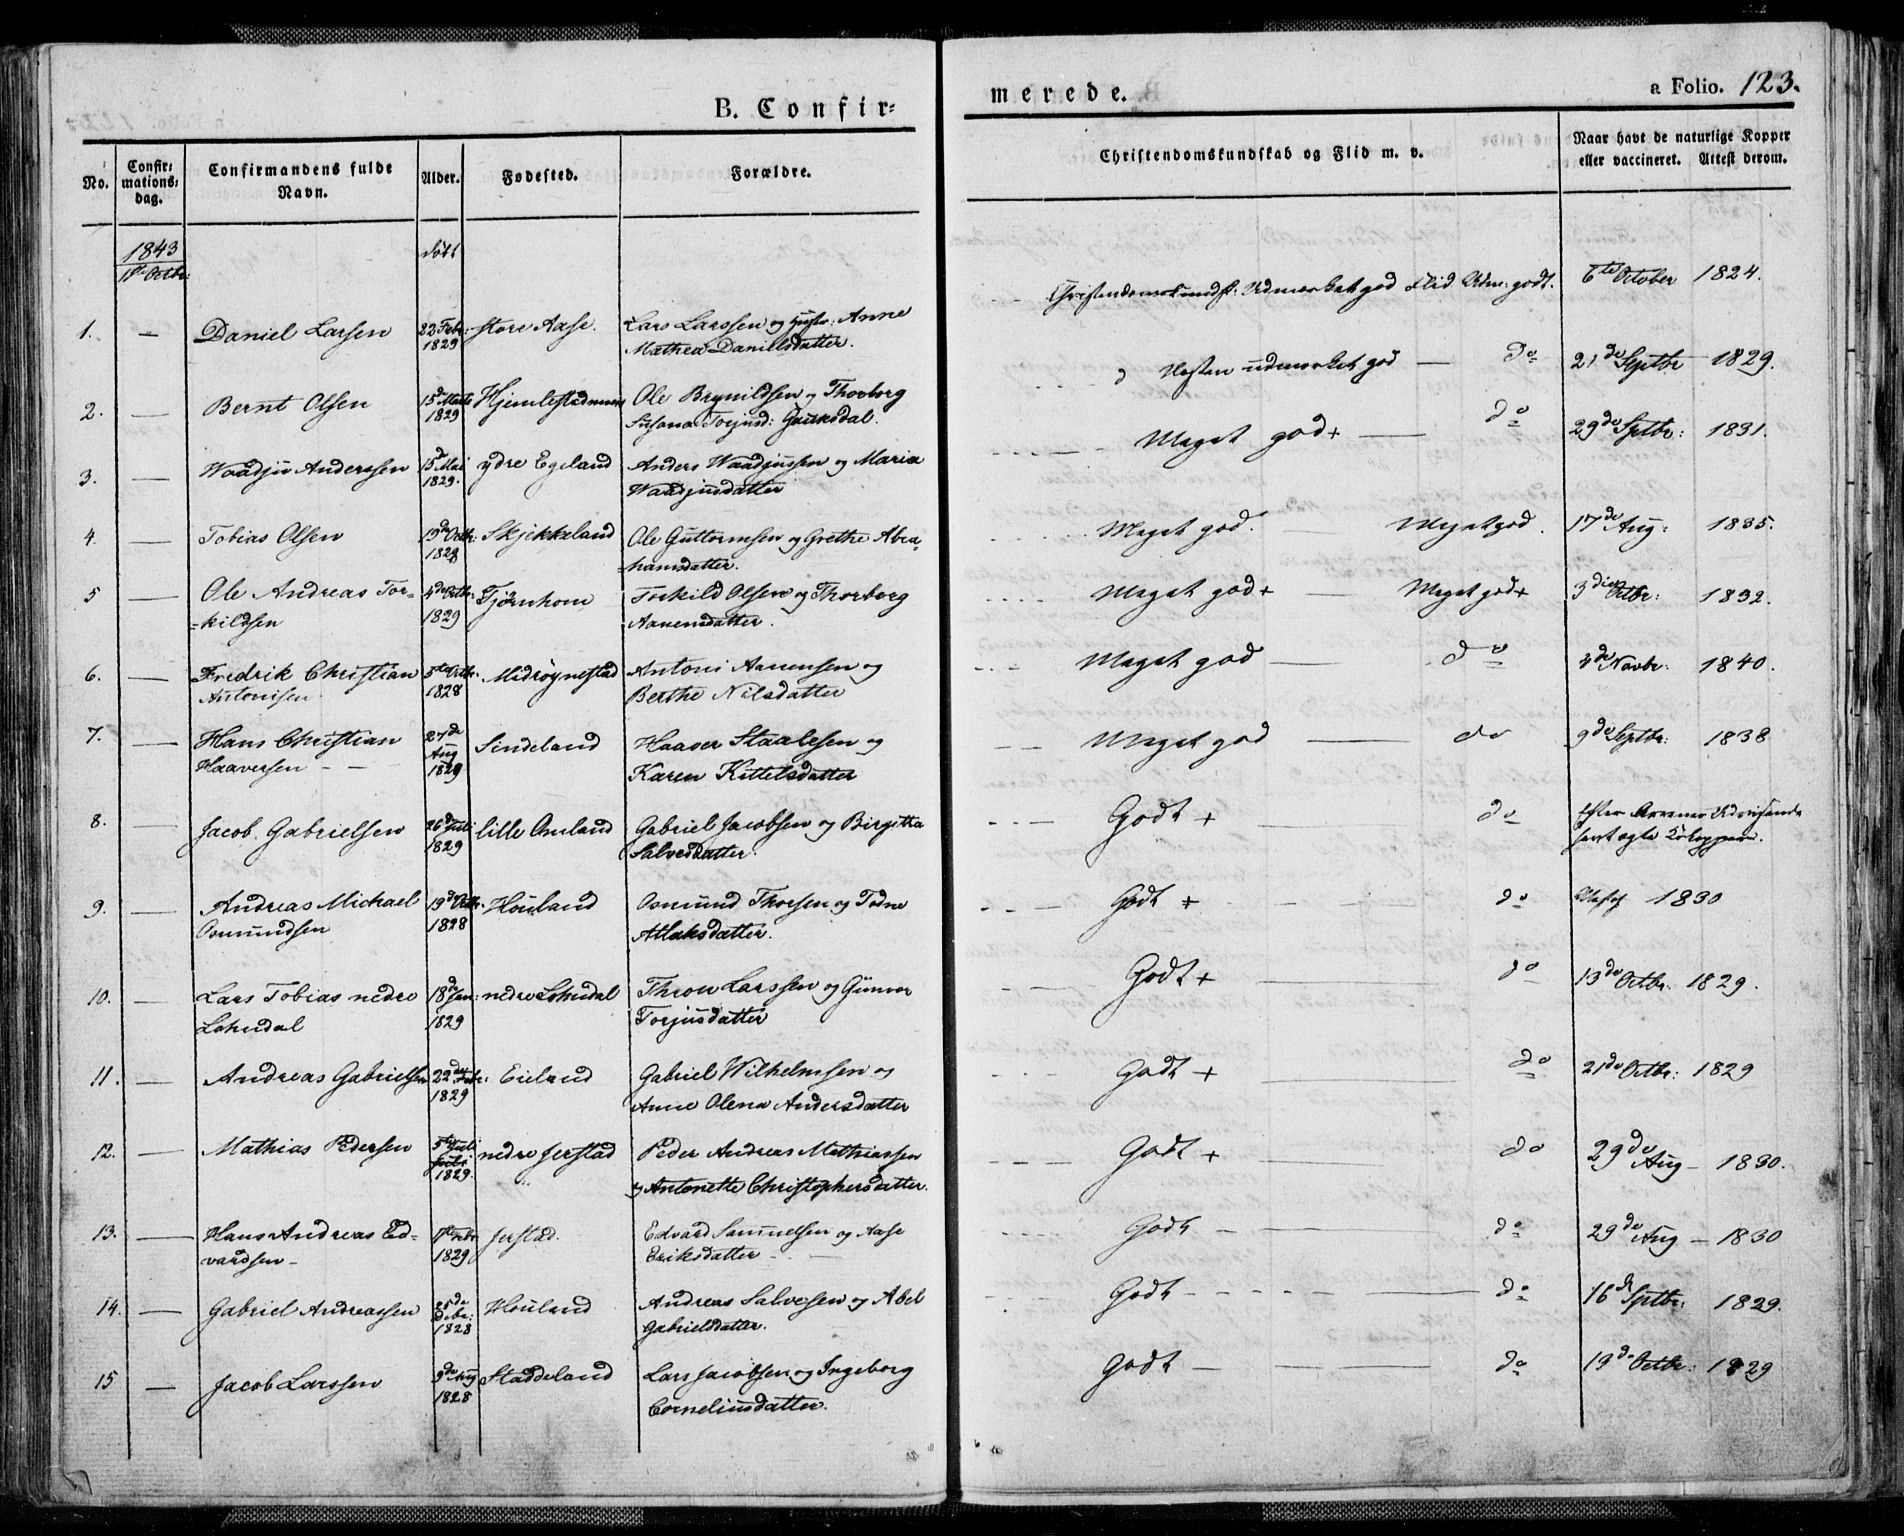 B. Confir=
merede.
a Folio. 123.
No.
Confir:
mations:
dag.
Confirmandens fulde
Navn.
Alder.
Fødested.
Forældre.
Christendomskundskab og Flid m. v.
Naar havt de naturlige Kopper
eller vaccineret. Attest derom.
1843
1ste Octbr:
født
1. — Daniel Larsen 22 Febr: 1829 store Aase. Lars Larssen og Hustr: Anne
Mathea Danielsdatter.
Christendomskundsk: Udmærket god Flid Udm: godt. 6te October 1824.
2. — Bernt Olsen 15de Marts 1829 Ole Brynildsen og Thorborg
Susana Torjusd:
Næsten udmærket god — do 21de Septbr 1829.
3. — Waadju Anderssen 15de Mai 1829. ydre Egeland Anders Waadjussen og Maria
Waadjusdatter
Meget god+ — do 29de Septbr: 1831.
4. — Tobias Olsen 19de Octbr: 1828 Skjekkeland Ole Guttormsen og Grethe Abra=
=hamsdatter.
Meget god. — Meget god. 17de Aug: 1835.
5 — Ole Andreas Tor-
=kildsen 4de Octbr: 1829 Tjørnhom Torkild Olsen og Thorborg
Aanensdatter.
Meget god+ — Meget god+ 3die Octbr: 1832.
6. — Fredrik Christian
Antonisen 5te Octbr: 1828 Midrøynestad Antoni Aanensen og
Berthe Nilsdatter
Meget god — do 4de Novbr: 1840.
7. — Hans Christian
Haaversen - - 27de Aug 1829 Sindeland Haaver Staalesen og
Karen Kittelsdatter
Meget god — do 9de Septbr: 1838
8. — Jacob Gabrielsen 26de Juli 1829 lille Omland Gabriel Jacobsen og Birgitta
Salvesdatter.
Godt + — do Efter Arrenes Udvisende
havt ægte Kokopper.
9. — Andreas Michael
Osmundsen 19de Octbr: 1828 Houland Osmund Thorsen og Todne
Atlaksdatter.
Godt + — do 1830
10. — Lars Tobias nedre
Lohndal 18de Jan: 1829 nedre Lohndal Thron Larssen og Gunvor
Torjusdatter
Godt + — do 13de Octbr. 1829.
11. — Andreas Gabrielsen 22de Febr: 1829 Eieland Gabriel Wilhelmsen og
Anne Olena Andersdatter
Godt + — do 21de Octbr: 1829
12. — Mathias Pedersen 5te Juli
Juli 1829. nedre Jerstad Peder Andreas Mathiassen
og Antonette Christophersdatter.
Godt + — do 29de Aug — 1830.
13. — Hans Andreas Ed-
vardsen - 1ste Febr 1829 Jerstad. Edvard Samuelsen og Aase
Eriksdatter -
Godt — do 29de Aug — 1830
14. — Gabriel Andreassen 25de Debr: 1828 Houland Andreas Salvesen og Abel
Gabrielsdatter.
Godt — do 16de Septbr: 1829.
15 — Jacob Larssen 9de Aug 1828 Staddeland Lars Jacobsen og Ingeborg
Corneliusdatter.
Godt — do 19de Octbr: 1829